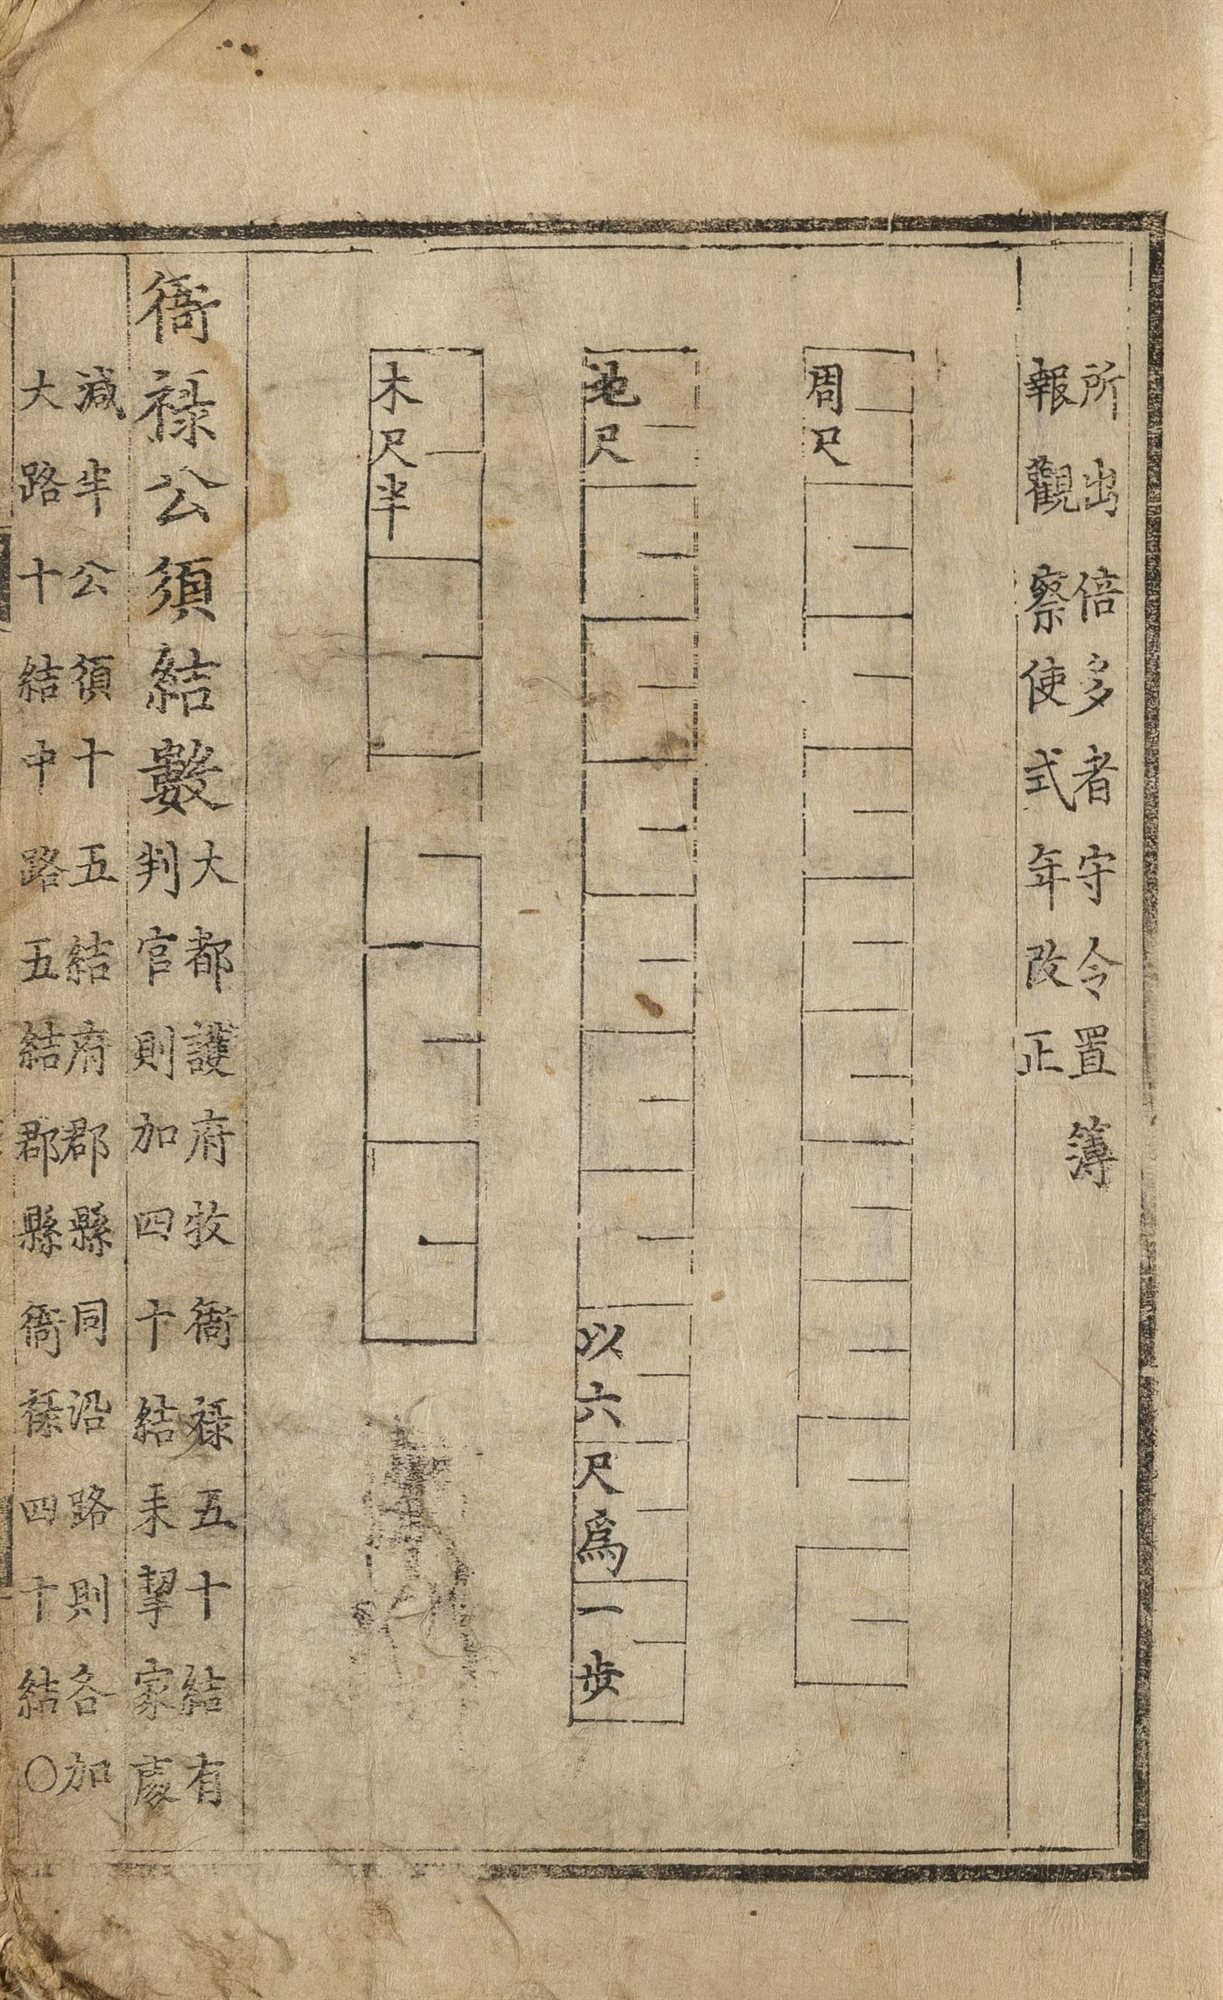 所出倍多者守令置簿
報觀察使式年改正
周尺
地尺
以六尺爲一步
木尺半
衙祿公須結數
大都護府牧衙祿五十結有
判官則加四十結未挈家處
減半公須十五結府郡縣同沿路則各加
大路十結中路五結郡縣衙祿四十結〇